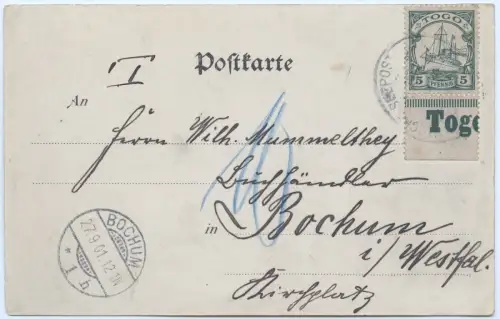 TOGO
5 PFENNIG 5
Toge
Postkarte
An
Herrn Wilh. Mummelthey
Buchhändler
in Bochum
i/ Westfal.
Kirchplatz
BOCHUM
27.9.01.12-1N.
* 1 h
10